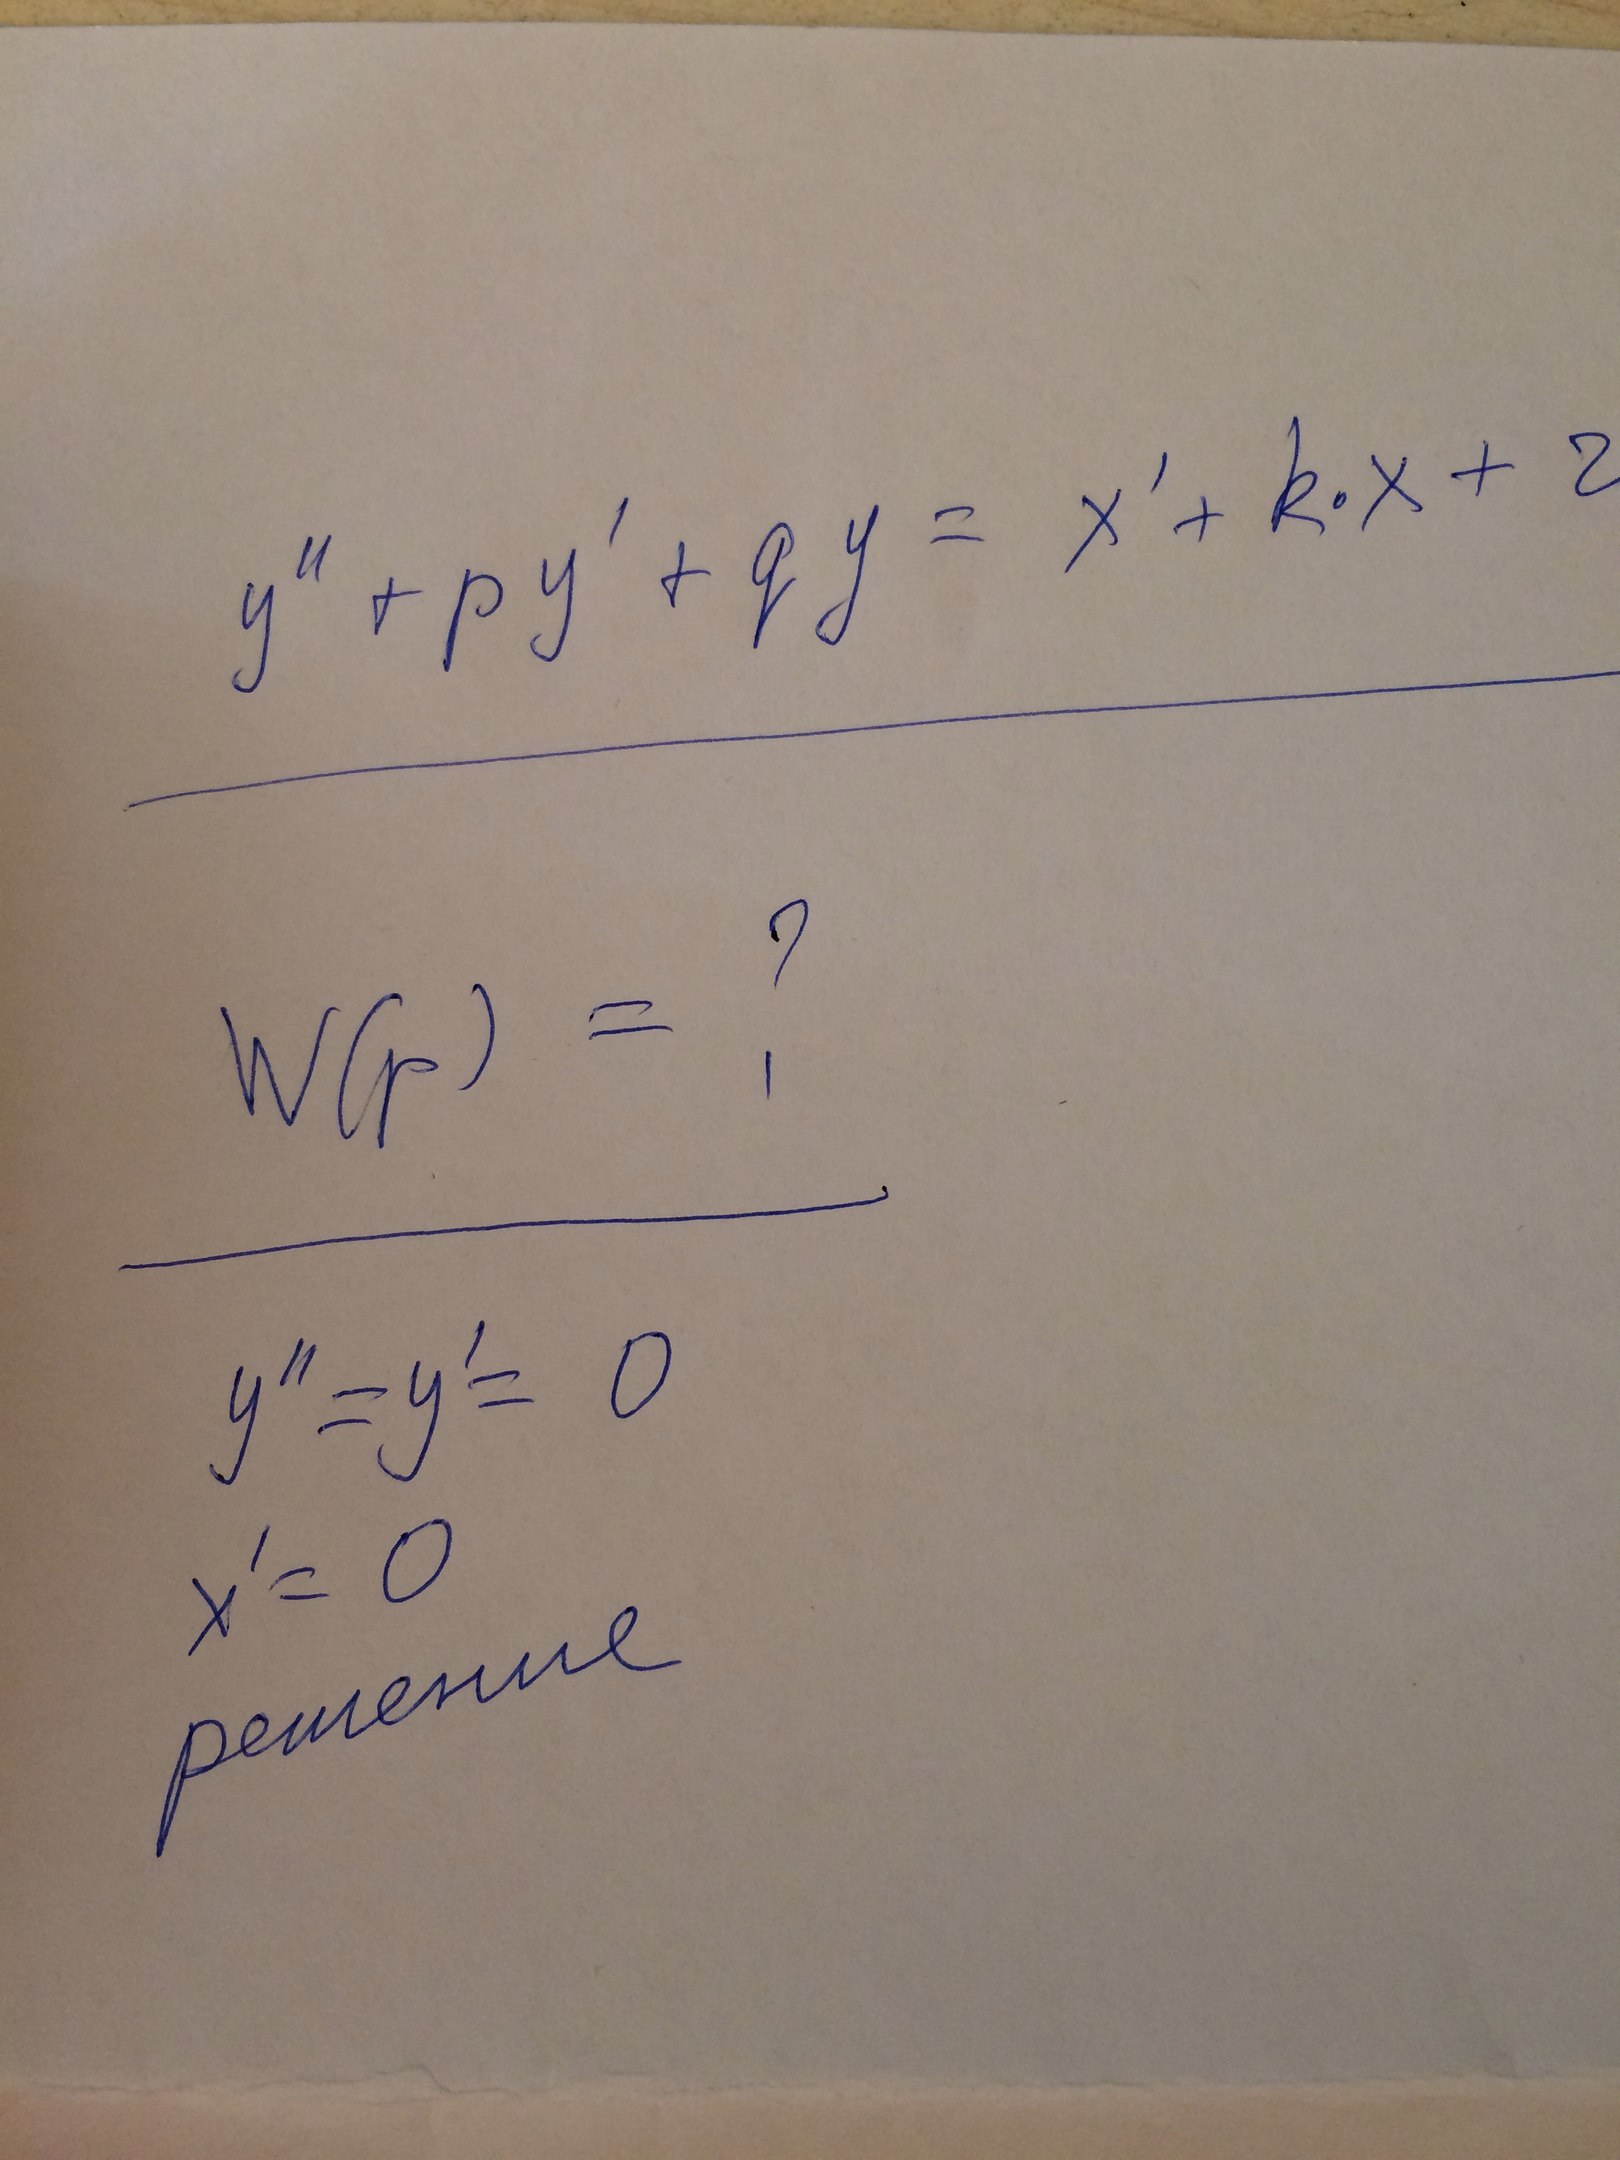 y'' + py' + qy = x' + k·x + 2
W(p) = ?
y'' = y' = 0
x' = 0
решение